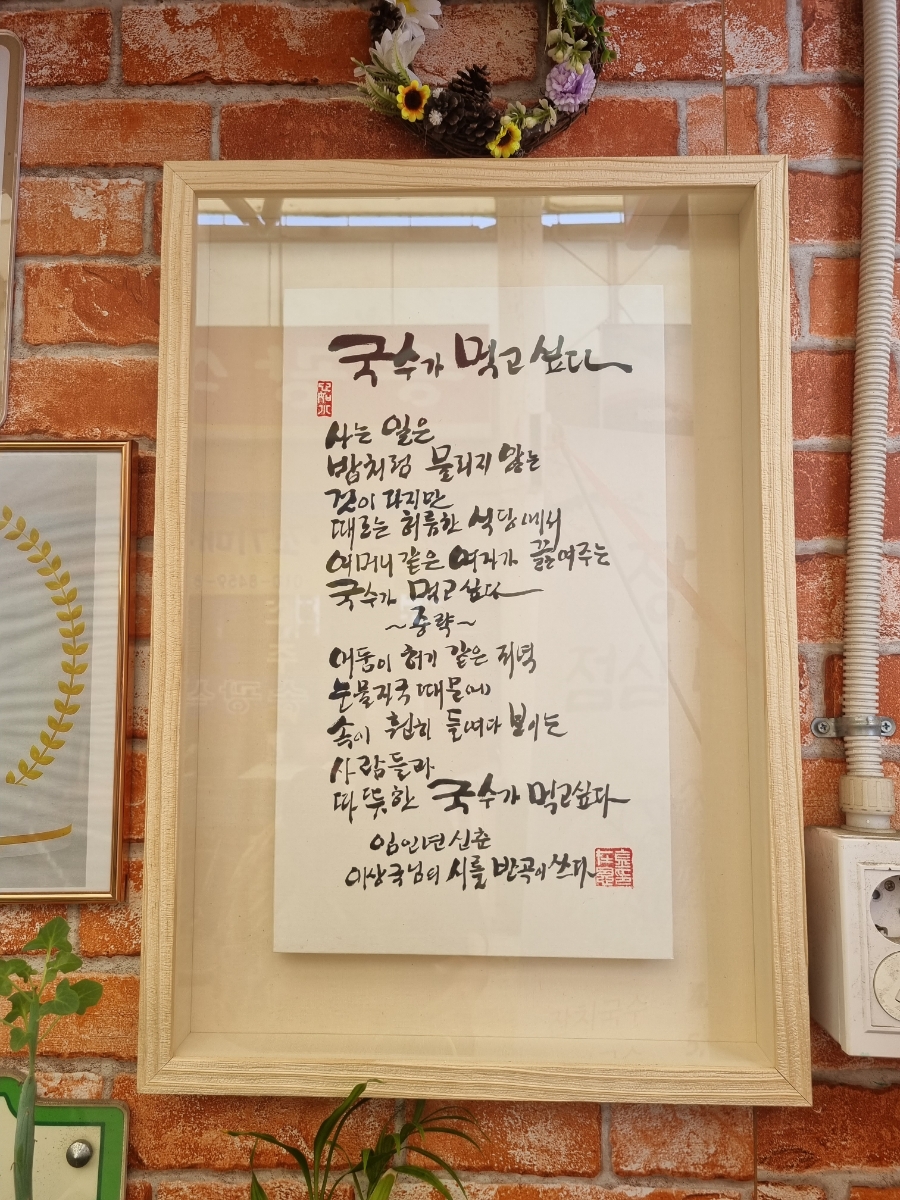 국수가 먹고 싶다
사는 일은
밥처럼 물리지 않는
것이 라지만
때로는 허름한 식당에서
어머니 같은 여자가 끓여주는
국수가 먹고 싶다
~중략~
어둠이 허기 같은 저녁
눈물자국 때문에
속이 훤히 들여다 보이는
사람들과
따뜻한 국수가 먹고싶다
임인년 신춘
이상국님의 시를 반곡이 쓰다